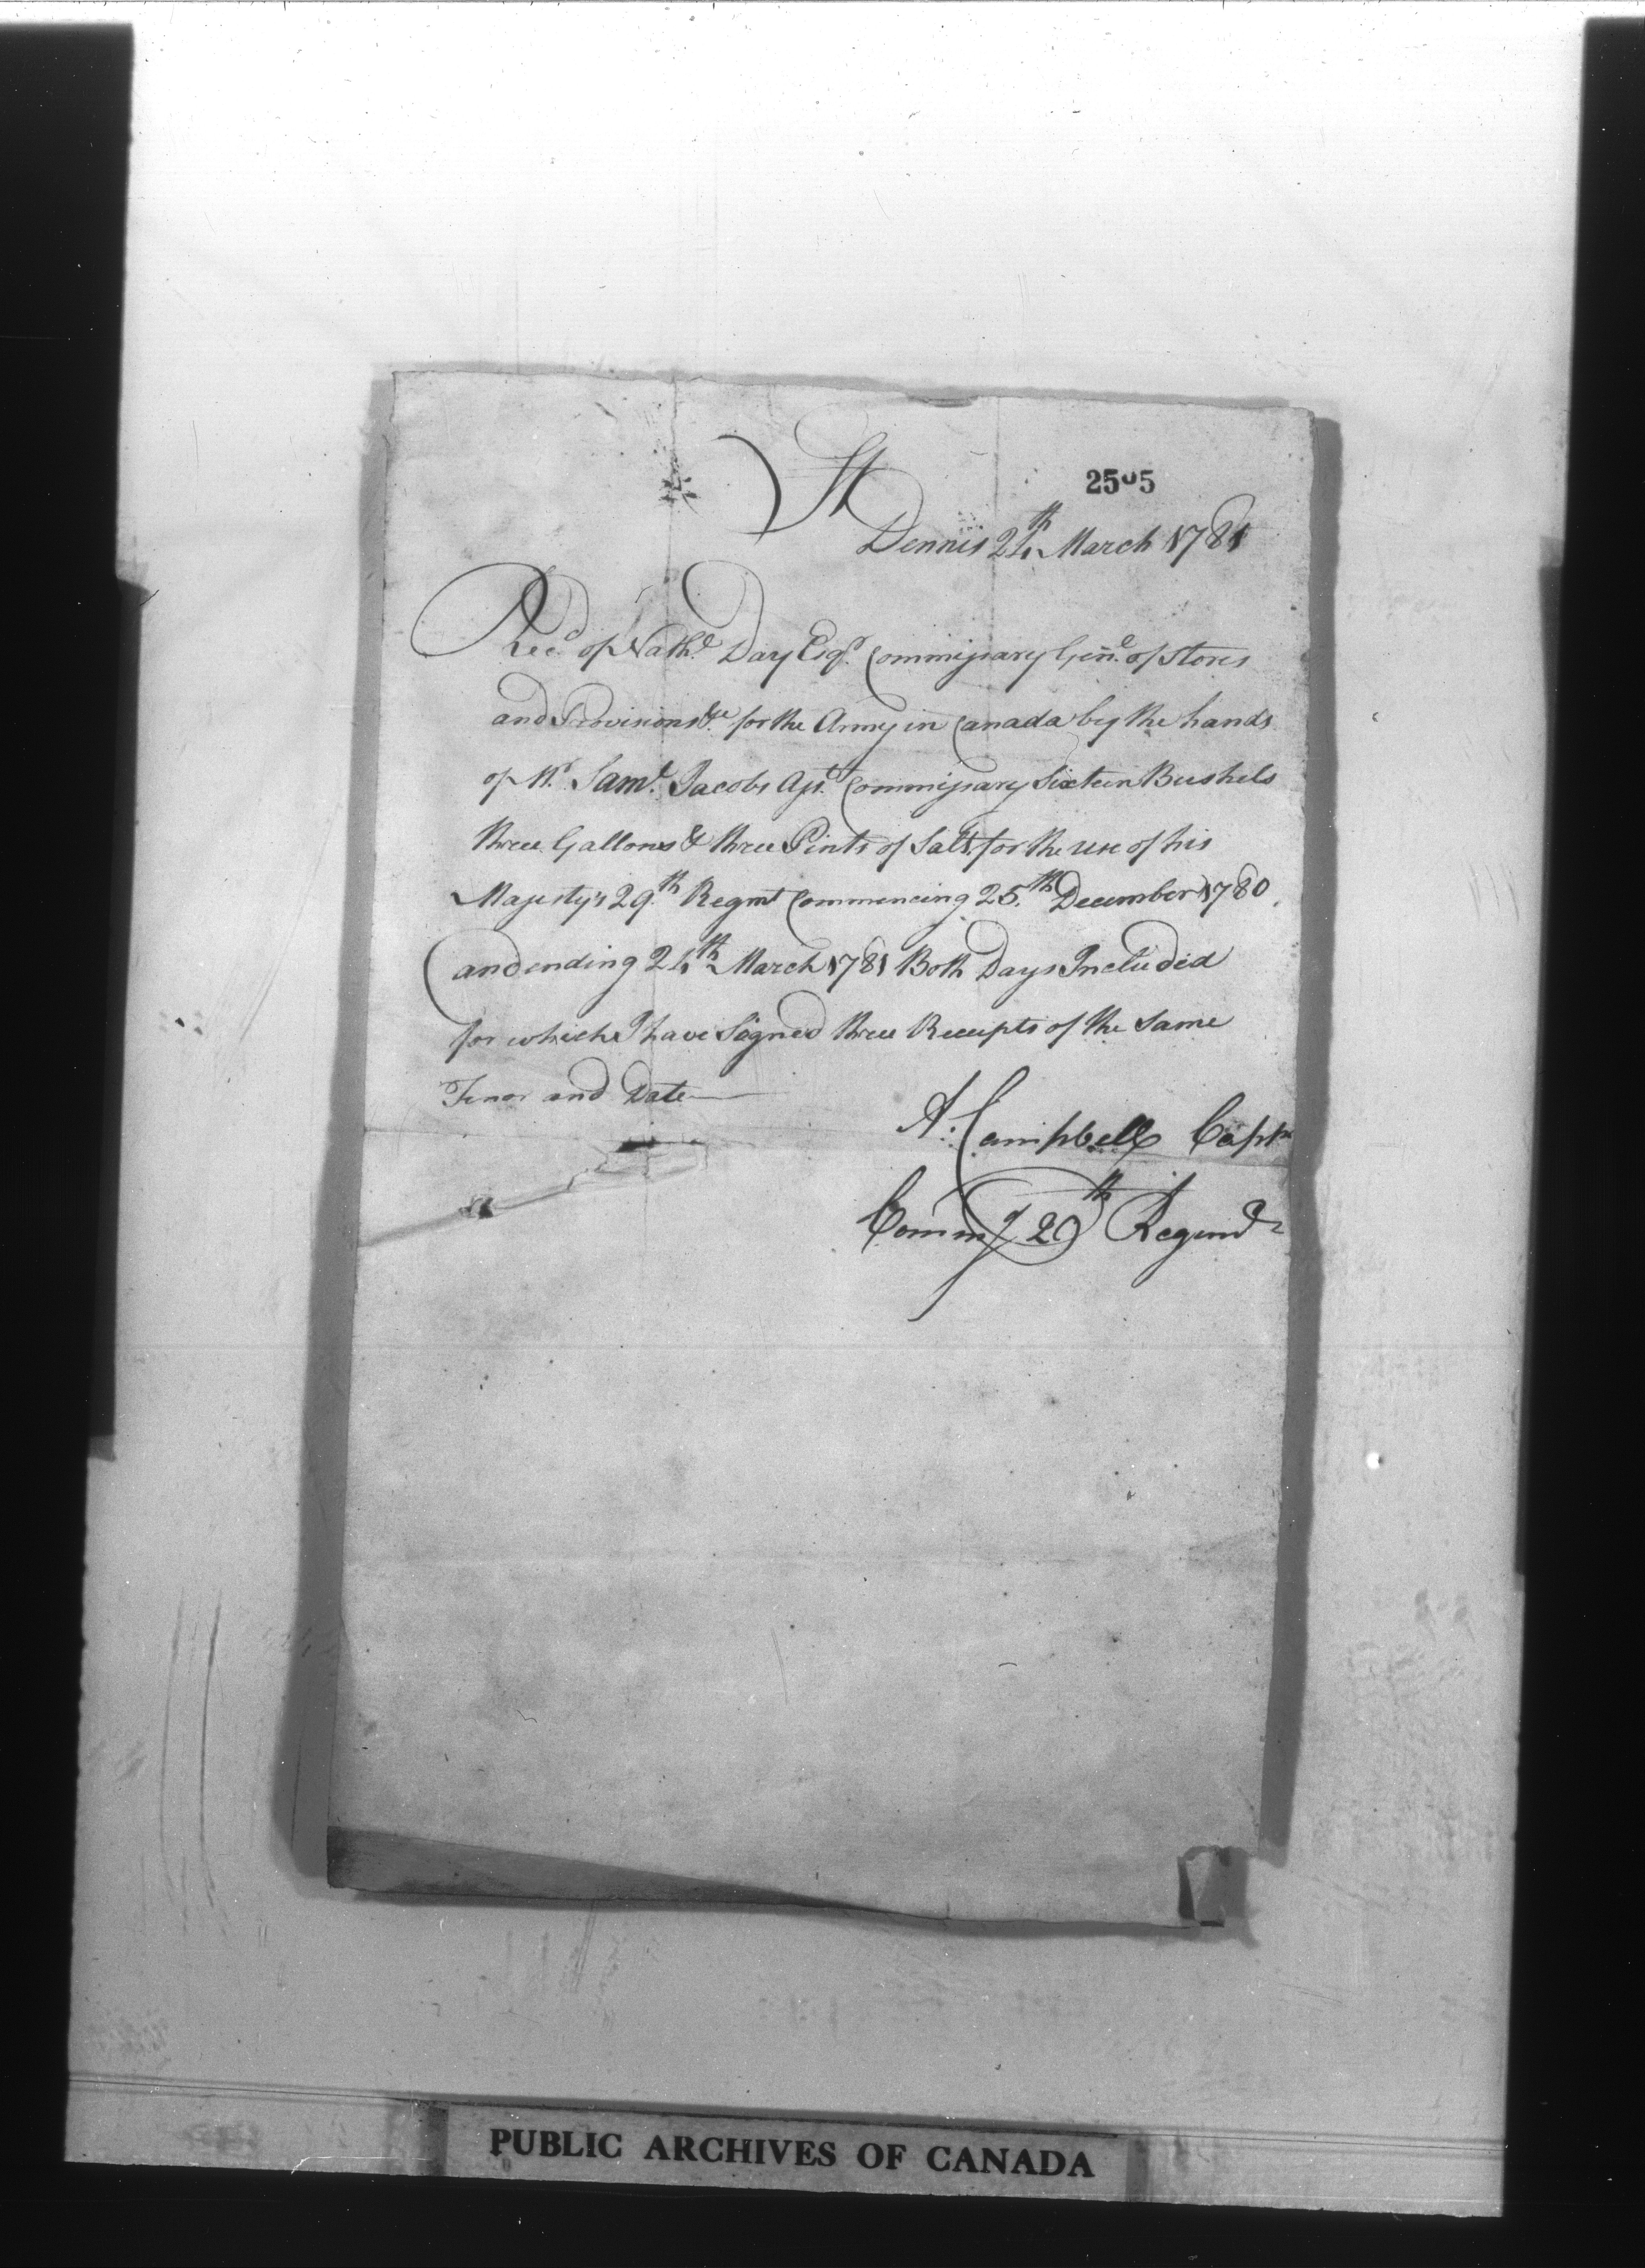 2505
St
Dennis 24th March 1781
Rec.d of Nath.l Day Esq.r Commissary Gen.l of Stores
and Provisions &c for the Army in Canada by the hands
of M.r Sam.l Jacobs Ass.t Commissary Sixteen Bushels
three Gallons & three Pints of Salt for the use of his
Majesty's 29.th Regmt Commencing 25.th December 1780
and ending 24th March 1781 Both Days Included
for which I have Signed three Receipts of the Same
Tenor and Date
A: Campbell Captn
Comm.g 29th Regimt
PUBLIC ARCHIVES OF CANADA